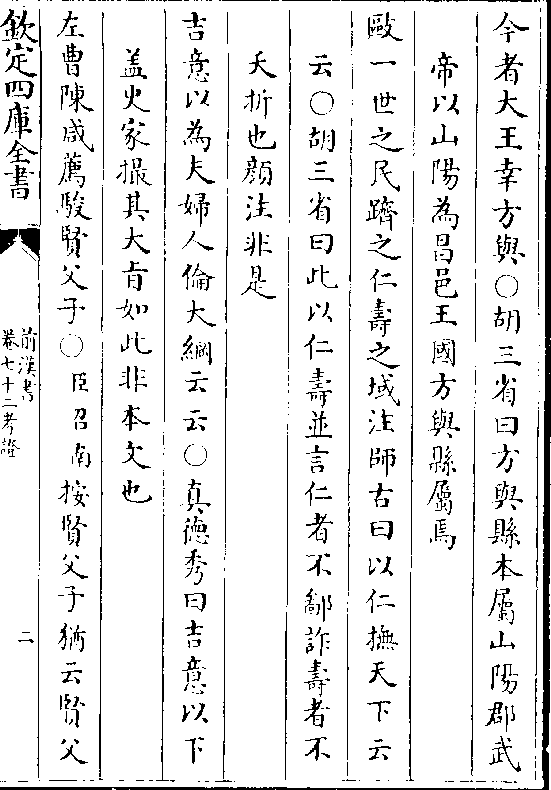 今者大王幸方與○胡三省曰方與縣本屬山陽郡武
帝以山陽為昌邑王國方與縣屬焉
敺一世之民躋之仁壽之域注師古曰以仁撫天下云
云○胡三省曰此以仁壽並言仁者不鄙詐壽者不
夭折也顔注非是
吉意以為夫婦人倫大綱云云○真德秀曰吉意以下
盖史家撮其大㫖如此非本文也
左曹陳咸薦駿賢父子○臣召南按賢父子猶云賢父
欽定四庫全書
前漢書
卷七十二考證
二